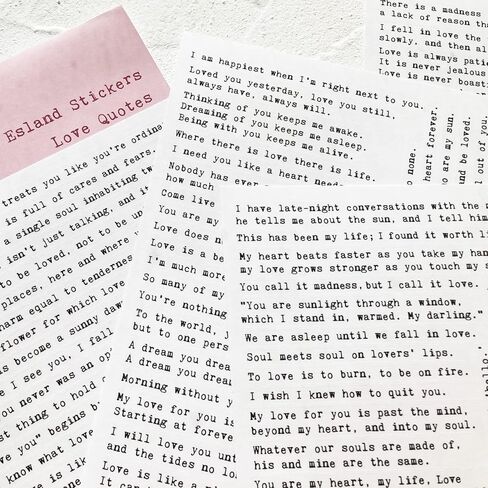 Esland Stickers
Love Quotes
treats you like you're ordina
is full of cares and fears.
a single soul inhabiting tw
isn't just talking, and it
to be loved, not to be un
places, here and where y
arm equal to tenderness
flower for which love
as become a sunny daw
I see you, I fall
you never was an opt
st thing to hold o
ve you" begins b
know what love
I am happiest when I'm right next to you.
Loved you yesterday, love you still,
always have, always will.
Thinking of you keeps me awake.
Dreaming of you keeps me asleep.
Being with you keeps me alive.
Where there is love there is life.
I need you like a heart need
Nobody has ever
how much
Come live
You are my
Love does n
Love is a be
I'm much more
So many of my
You're nothing
To the world, y
but to one pers
A dream you drea
A dream you drea
Morning without y
My love for you is
Starting at foreve
I will love you unt
and the tides no lo
Love is like a
It can
There is a madness
a lack of reason tha
I fell in love the
slowly, and then al
Love is always patie
It is never jealous
Love is never boasti
heart forever.
are my sun.
and be loved.
l out of you.
o none.
hello."
I have late-night conversations with the m
he tells me about the sun, and I tell him
This has been my life; I found it worth li
My heart beats faster as you take my han
my love grows stronger as you touch my s
You call it madness, but I call it love.
"You are sunlight through a window,
which I stand in, warmed. My darling."
We are asleep until we fall in love.
Soul meets soul on lovers' lips.
To love is to burn, to be on fire.
I wish I knew how to quit you.
My love for you is past the mind,
beyond my heart, and into my soul.
Whatever our souls are made of,
his and mine are the same.
You are my heart, my life, Love